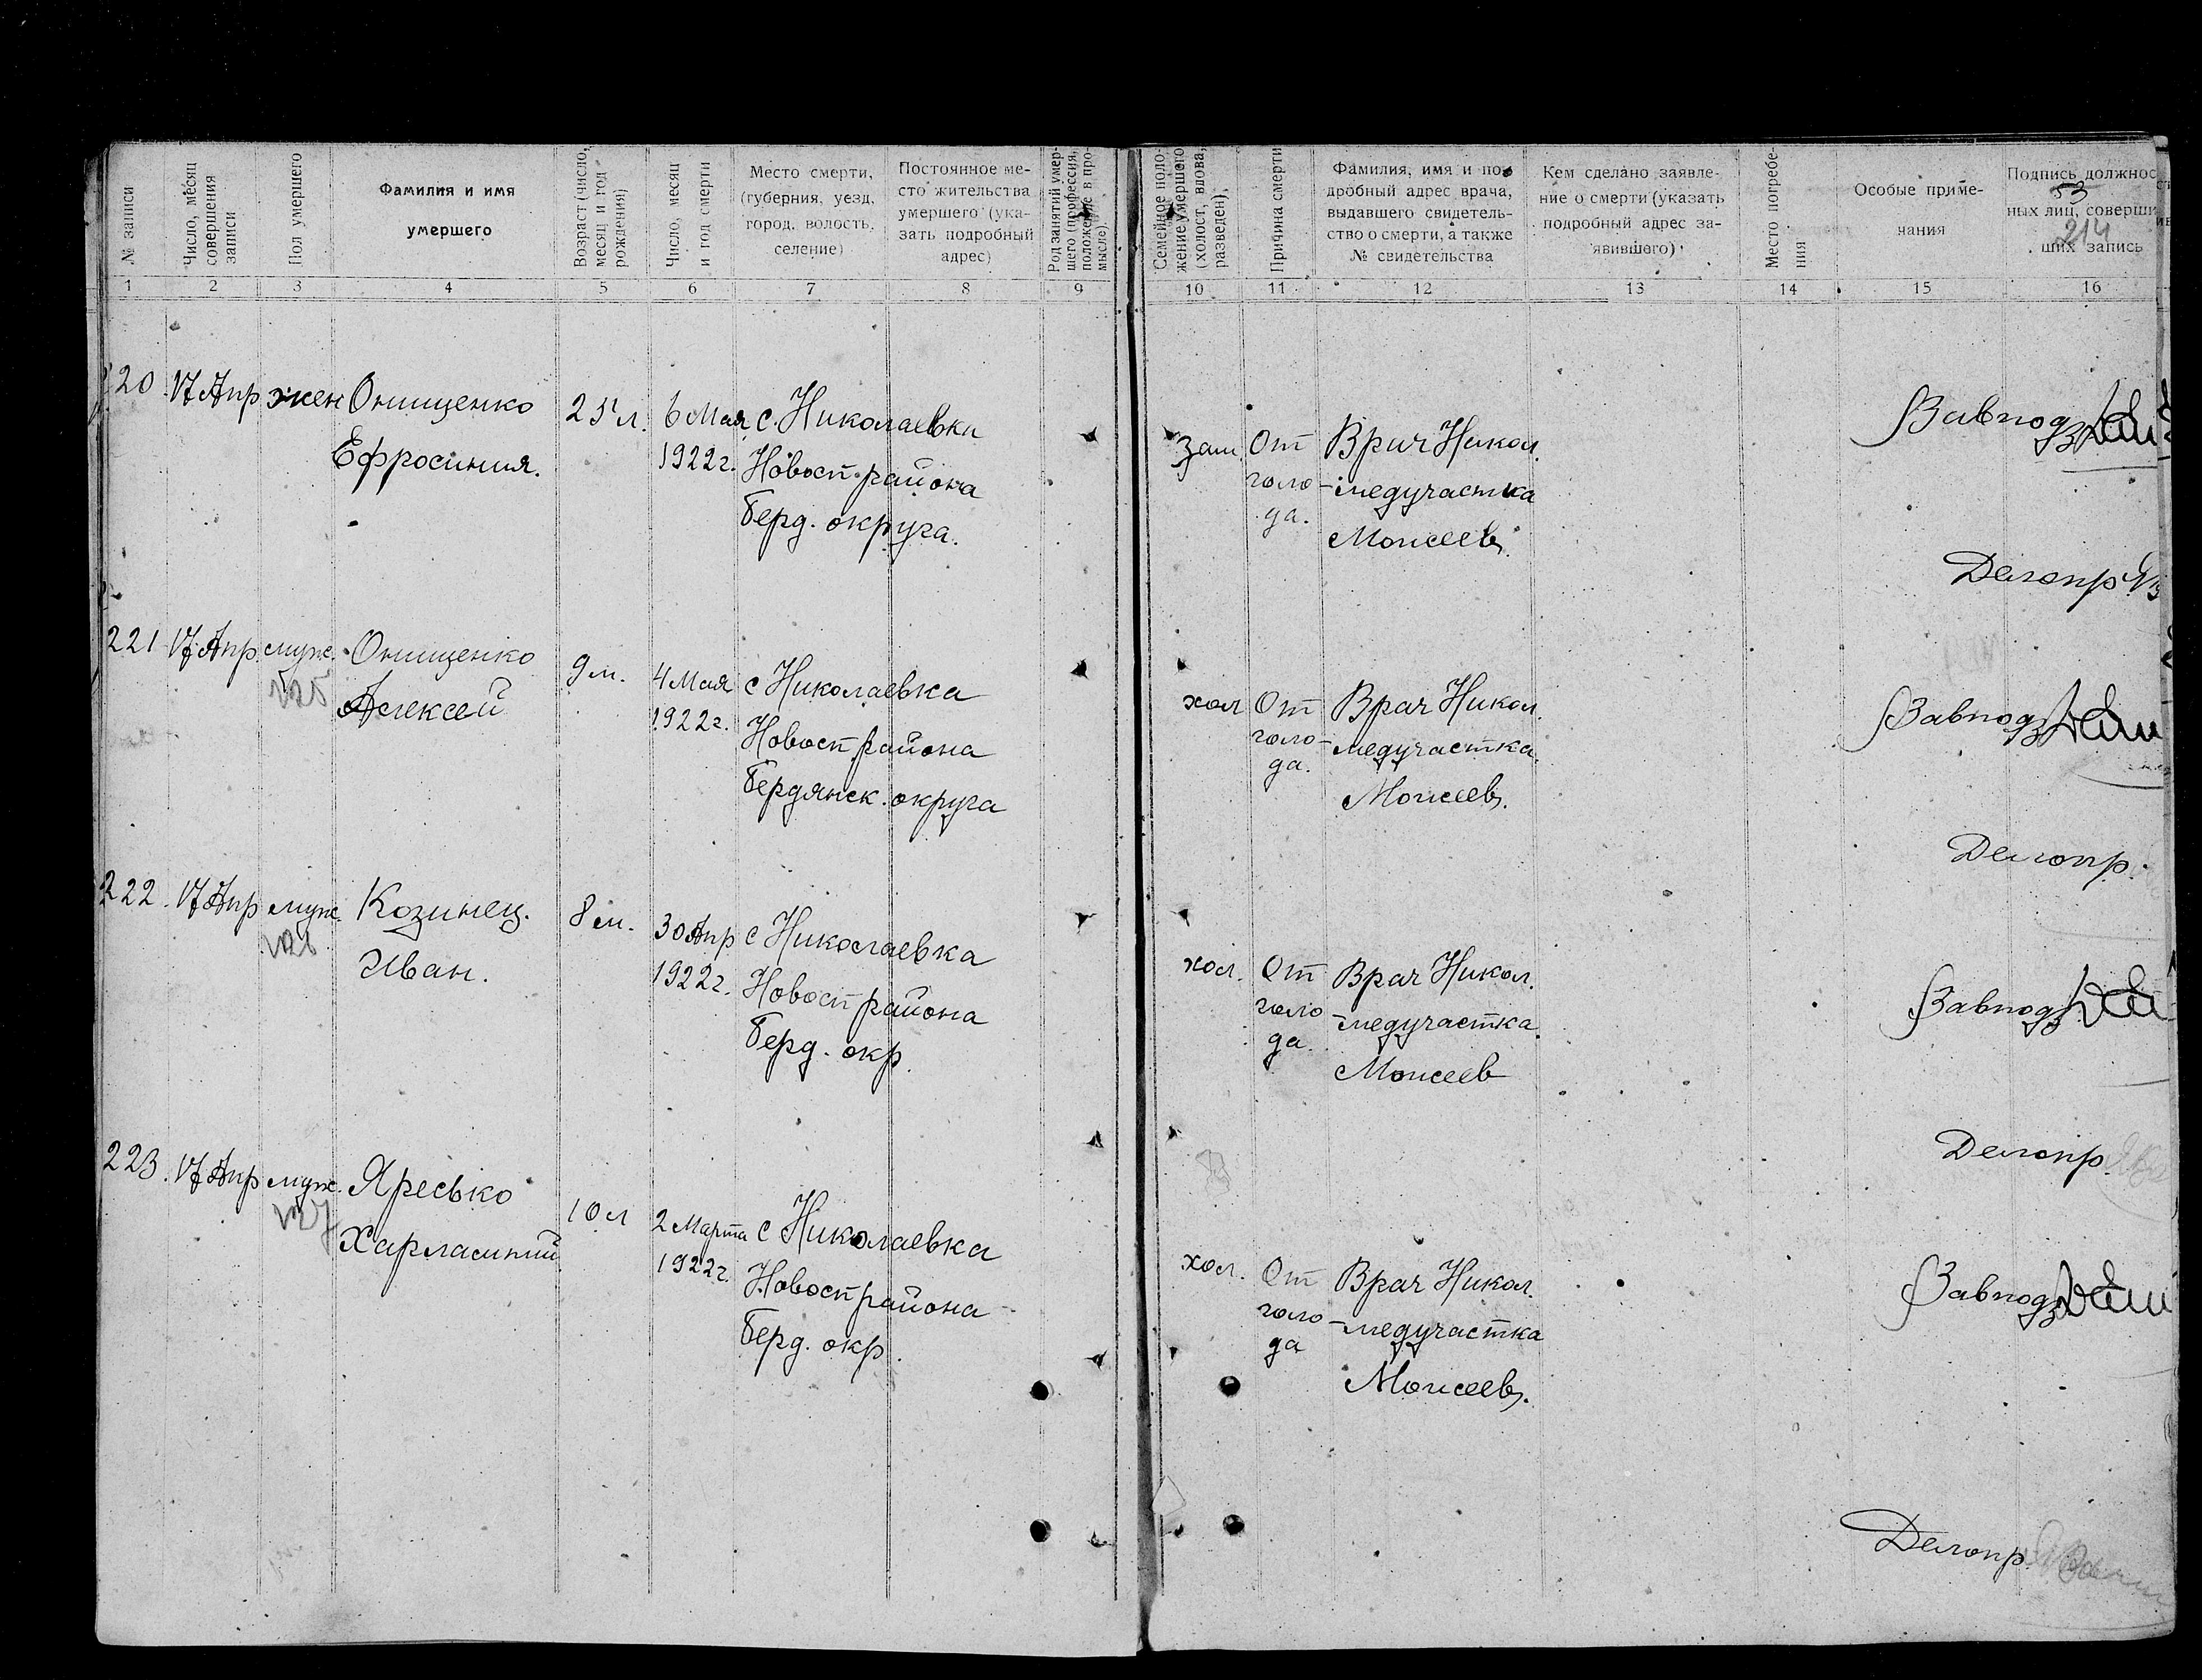 № записи
Число, месяц
совершения
записи
Пол умершего
Фамилия и имя
умершего
Возраст (число,
месяц и год
рождения)
Число, месяц
и год смерти
Место смерти,
(губерния, уезд,
город, волость,
селение)
Постоянное ме-
сто жительства
умершего (ука-
зать подробный
адрес)
Род занятий умер-
шего (профессия,
положение в про-
мысле).
Семейное поло-
жение умершего
(холост, вдова,
разведен),
Причина смерти
Фамилия, имя и по
дробный адрес врача,
выдавшего свидетель-
ство о смерти, а также
№ свидетельства
Кем сделано заявле-
ние о смерти (указать
подробный адрес за-
явившего)
Место погребе-
ния
Особые приме-
чания
Подпись должнос
53
ных лиц, соверши
214
ших запись
1 2 3 4 5 6 7 8 9 10 11 12 13 14 15 16
220 17 Апр жен Онищенко
Ефросиния.
25 л. 6 Мая
1922 г.
с. Николаевки
Новосп. района
Берд. округа.
зам. От
голо-
да.
Врач Никол.
медучастка
Моисеев.
Завподз
Делопр
221 17 Апр. муж. Онищенко
Алексей
9 м. 4 Мая
1922 г.
с Николаевка
Новосп района
Бердянск. округа
хол От
голо-
да.
Врач Никол.
медучастка.
Моисеев.
Завподз
Делопр.
222. 17 Апр муж. Козинец.
Иван.
8 м. 30 Апр
1922 г.
с Николаевка
Новосп района
Берд. окр.
хол. От
голо-
да.
Врач Никол.
медучастка.
Моисеев
Завподз
Делопр.
223. 17 Апр муж. Яресько
Харлампий
10 л 2 Марта
1922 г.
с Николаевка
Новосп района
Берд. окр.
хол. От
голо-
да
Врач Никол.
медучастка
Моисеев.
Завподз
Делопр.